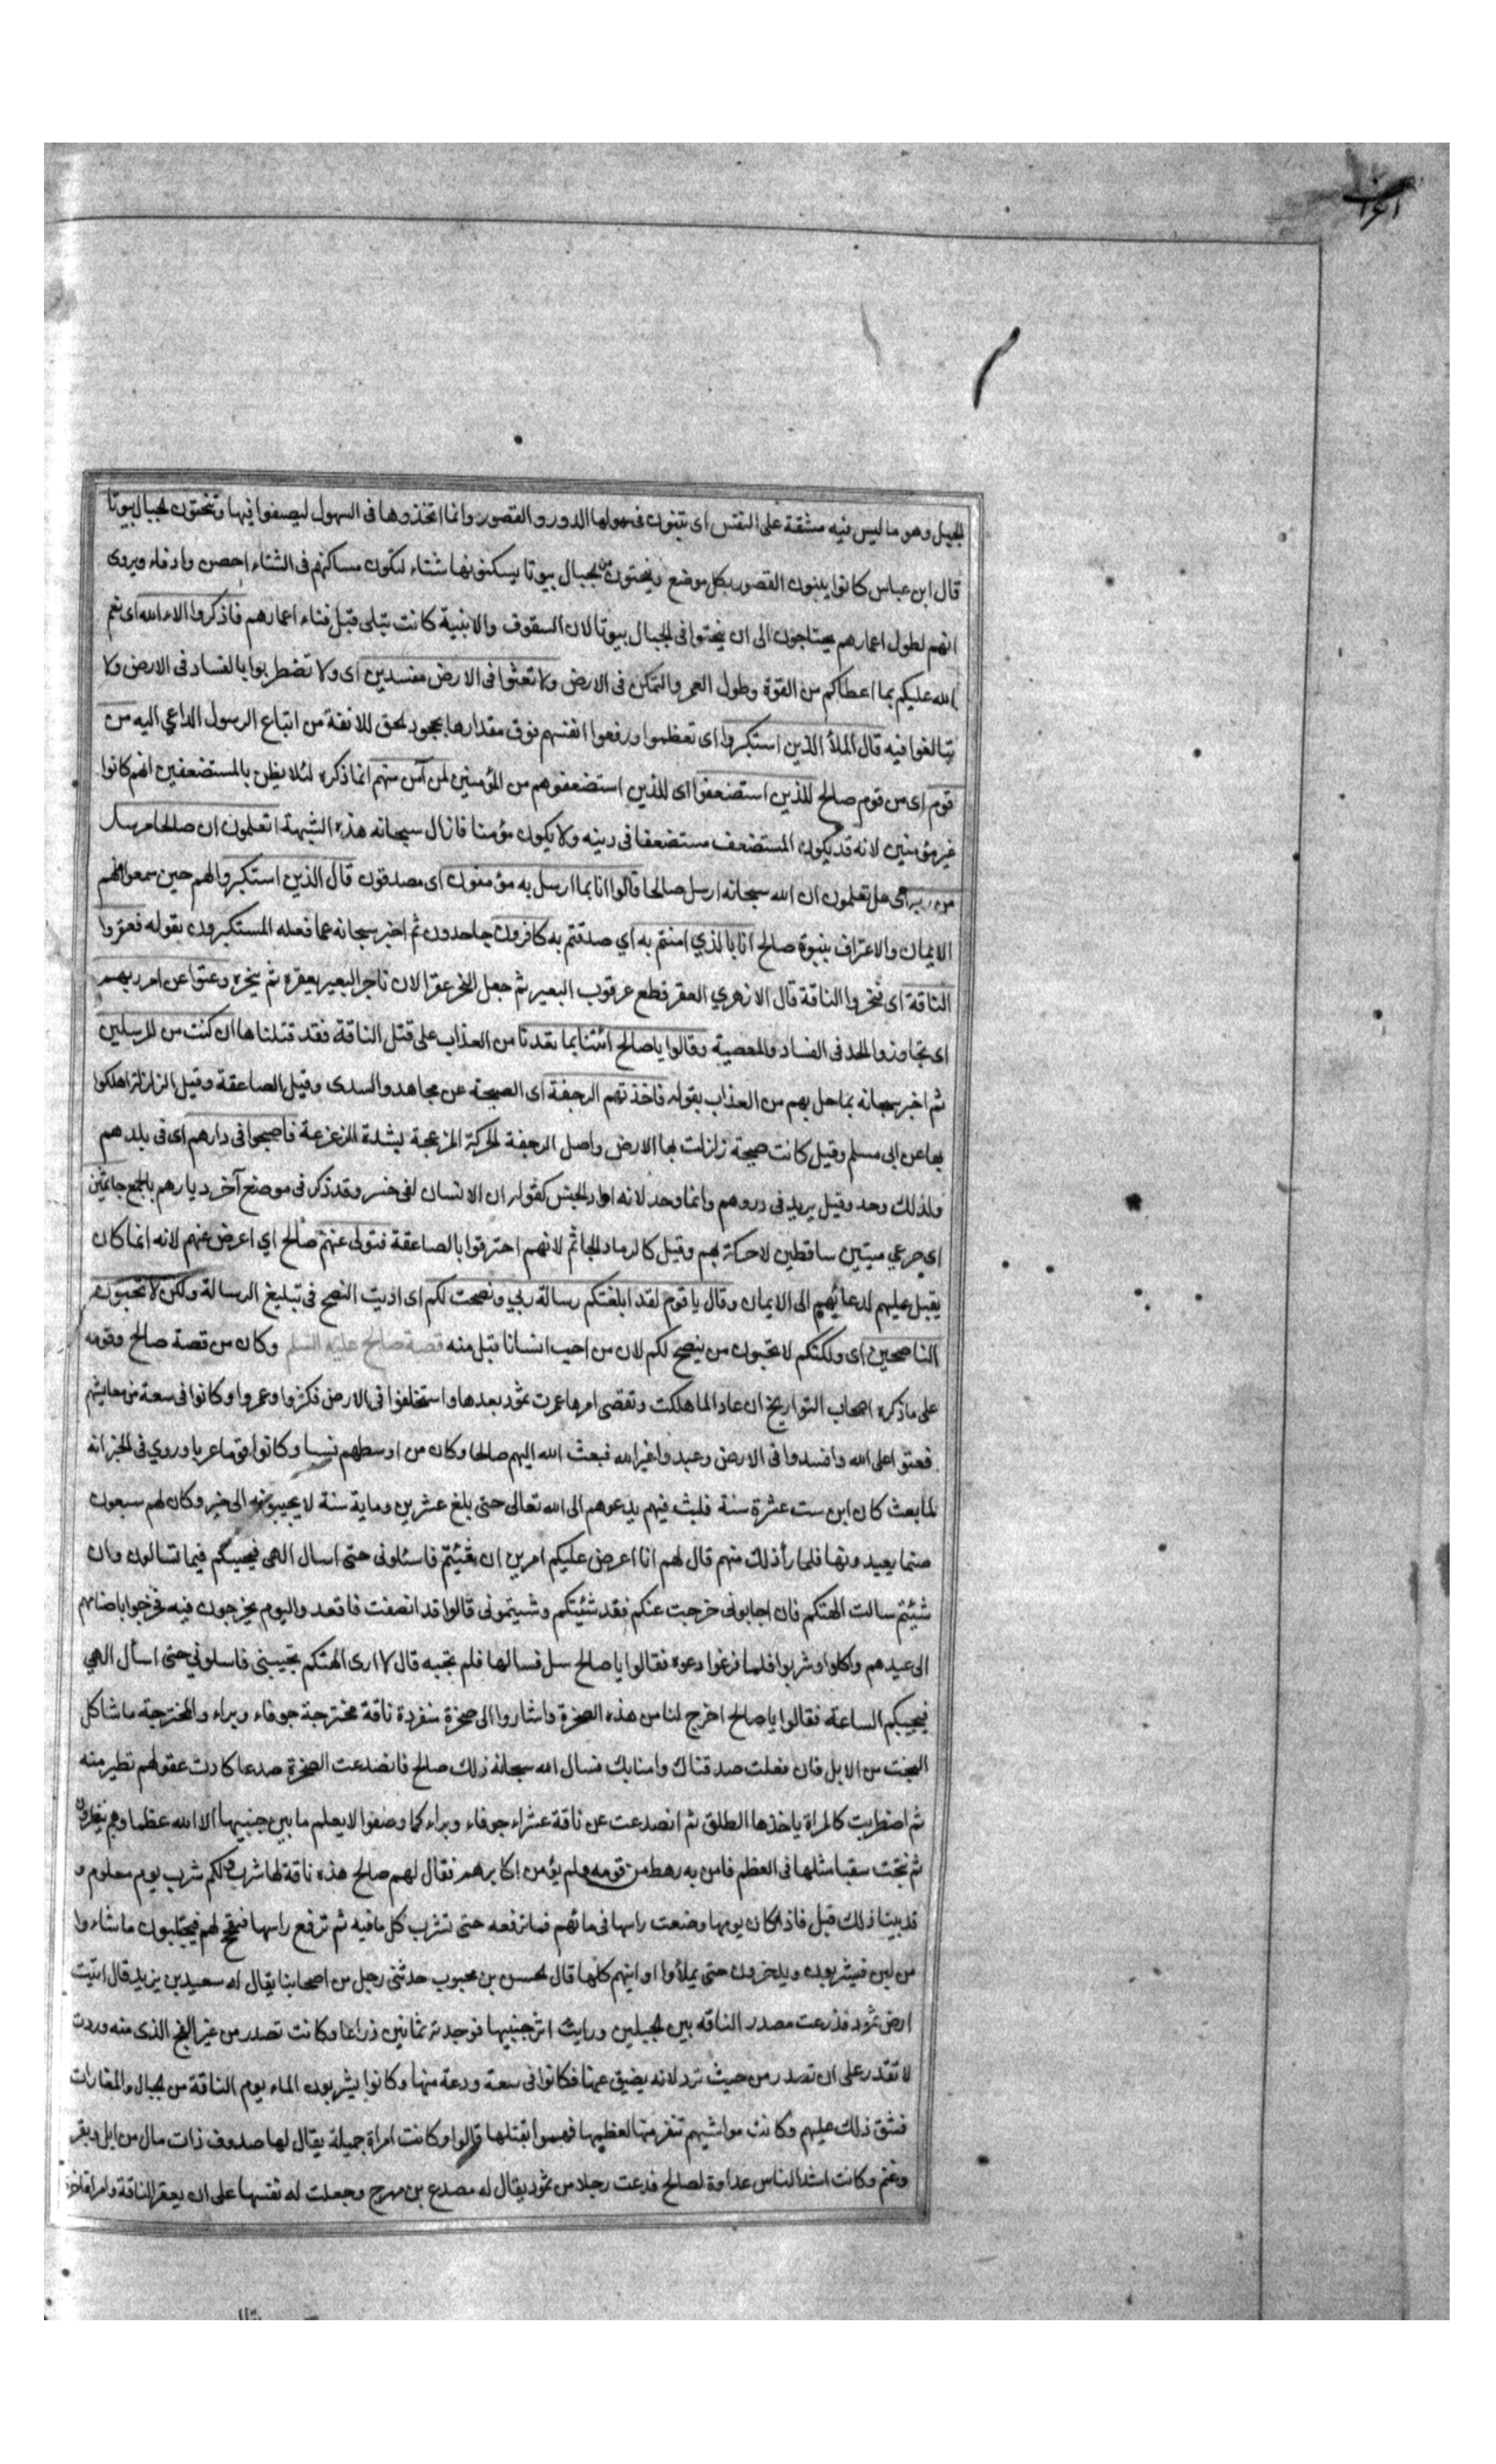 الجبل وهو ما ليس فيه مشقة على النفس اى تبنون فى سهولها الدور والقصور وانما اتخذوها فى السهول ليصيفوا فيها وتنحتون الجبال بيوتا
قال ابن عباس كانوا يبنون القصور بكل موضع وينحتون من الجبال بيوتا يسكنونها شتاء لتكون مساكنهم فى الشتاء احصن وادفاء ويروى
انهم لطول اعمارهم يحتاجون الى ان ينحتوا فى الجبال بيوتا لان السقوف والابنية كانت تبلى قبل فناء اعمارهم فاذكروا الاء الله اى نعم
الله عليكم بما اعطاكم من القوة وطول العمر والتمكن فى الارض ولا تعثوا فى الارض مفسدين اى ولا تضطربوا بالفساد فى الارض ولا
تبالغوا فيه قال الملأ الذين استكبروا اى تعظموا ورفعوا انفسهم فوق مقدارها بجحود الحق للانفة من اتباع الرسول الداعي اليه من
قومه اى من قوم صالح للذين استضعفوا اى للذين استضعفوهم من المؤمنين لمن آمن منهم انما ذكره لئلا يظن بالمستضعفين انهم كانوا
غير مؤمنين لانه قد يكون المستضعف مستضعفا فى دينه ولا يكون مؤمنا فازال سبحانه هذه الشبهة اتعلمون ان صالحا مرسل
من ربه اى هل تعلمون ان الله سبحانه ارسل صالحا قالوا انا بما ارسل به مؤمنون اى مصدقون قال الذين استكبروا لهم حين سمعوا منهم
الايمان والاعتراف بنبوة صالح انا بالذي امنتم به اي صدقتم به كافرون جاحدون ثم اخبر سبحانه عما فعله المستكبرون بقوله فعقروا
الناقة اى فنحروا الناقة قال الازهري العقر قطع عرقوب البعير ثم جعل النحر عقرا لان ناحر البعير يعقره ثم ينحره وعتوا عن امر ربهم
اى تجاوزوا الحد فى الفساد والمعصية وقالوا يا صالح ائتنا بما تعدنا من العذاب على قتل الناقة فقد قتلناها ان كنت من المرسلين
ثم اخبر سبحانه بما حل بهم من العذاب بقوله فاخذتهم الرجفة اى الصيحة عن مجاهد والسدى وقيل الصاعقة وقيل الزلزلة اهلكوا
بها عن ابى مسلم وقيل كانت صيحة زلزلت بها الارض واصل الرجفة الحركة المزعجة بشدة الزعزعة فاصبحوا فى دارهم اى فى بلدهم
ولذلك وحد وقيل يريد فى دورهم وانما وحد لانه اراد الجنس كقوله ان الانسان لفى خسر وقد ذكر فى موضع آخر ديارهم بالجمع جاثمين
اى صرعي ميتين ساقطين لا حركة بهم وقيل كالرماد الجاثم لانهم احترقوا بالصاعقة فتولى عنهم صالح اي اعرض عنهم لانه انما كان
يقبل عليهم لدعائهم الى الايمان وقال يا قوم لقد ابلغتكم رسالة ربي ونصحت لكم اى اديت النصح فى تبليغ الرسالة ولكن لا تحبون
الناصحين اى ولكنكم لا تحبون من ينصح لكم لان من احب انسانا قبل منه قصة صالح عليه السلم وكان من قصة صالح وقومه
على ما ذكره اصحاب التواريخ ان عادا لما هلكت وتقضى امرها عمرت ثمود بعدها واستخلفوا فى الارض فكثروا وعمروا وكانوا فى سعة من معايشهم
فعتوا على الله وافسدوا فى الارض وعبدوا غير الله فبعث الله اليهم صالحا وكان من اوسطهم نسبا وكانوا قوما عربا وروي فى الخبر انه
لما بعث كان ابن ست عشرة سنة فلبث فيهم يدعوهم الى الله تعالى حتى بلغ عشرين وماية سنة لا يجيبونه الى خير وكان لهم سبعون
صنما يعبدونها فلما رأ ذلك منهم قال لهم انا اعرض عليكم امرين ان شئتم فاسئلونى حتى اسال الهى فيجيبكم فيما تسالون وان
شئتم سالت الهتكم فان اجابونى خرجت عنكم فقد شنئتكم وشنئتمونى قالوا قد انصفت فاتعدوا ليوم يخرجون فيه فخرجوا باصنامهم
الى عيدهم واكلوا وشربوا فلما فرغوا دعوه فقالوا يا صالح سل فسالها فلم تجبه قال لا ارى الهتكم تجيبنى فاسلوني حتى اسأل الهي
فيجيبكم الساعة فقالوا يا صالح اخرج لنا من هذه الصخرة واشاروا الى صخرة منفردة ناقة مخترجة جوفاء وبراء والمخترجة ما شاكل
البخت من الابل فان فعلت صدقناك وامنابك فسال الله سبحانه ذلك صالح فانصدعت الصخرة صدعا كادت عقولهم تطير منه
ثم اضطربت كالمراة ياخذها الطلق ثم انصدعت عن ناقة عشراء جوفاء وبراء كما وصفوا لا يعلم ما بين جنبيها الا الله عظما وهم ينظرون
ثم نتجت سقبا مثلها فى العظم فامن به رهط من قومه ولم يؤمن اكابرهم فقال لهم صالح هذه ناقة لها شرب ولكم شرب يوم معلوم و
قد بينا ذلك قبل فاذا كان يومها وضعت راسها فى مائهم فما ترفعه حتى تشرب كل ما فيه ثم ترفع راسها فتفحج لهم فيحتلبون ما شاءوا
من لبن فيشربون ويدخرون حتى يملأوا اوانيهم كلها قال الحسن بن محبوب حدثنى رجل من اصحابنا يقال له سعيد بن يزيد قال اتيت
ارض ثمود فذرعت مصدر الناقه بين الجبلين ورايت اثر جنبيها فوجدته ثمانين ذراعا وكانت تصدر من غير الفج الذى منه وردت
لا تقدر على ان تصدر من حيث ترد لانه يضيق عنها فكانوا فى سعة ودعة منها وكانوا يشربون الماء يوم الناقة من الجبال والمغارات
فشق ذلك عليهم وكانت مواشيهم تنفر منها لعظمها فهموا بقتلها قالوا وكانت امراة جميلة يقال لها صدوف ذات مال من ابل وبقر
وغنم وكانت اشد الناس عداوة لصالح فدعت رجلا من ثمود يقال له مصدع بن مهرج وجعلت له نفسها على ان يعقر الناقة وامراة